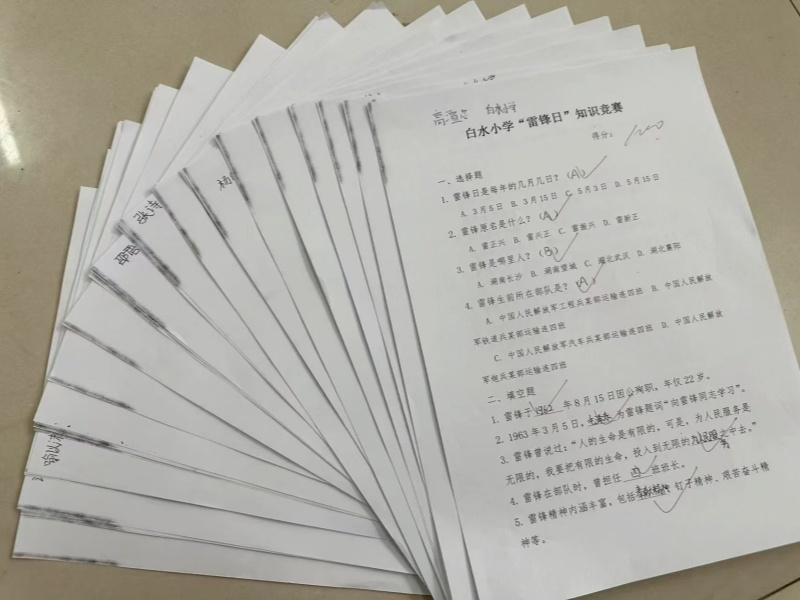 白水小学
白水小学“雷锋日”知识竞赛
得分: 100
一、选择题
1. 雷锋日是每年的几月几日？（A）
A. 3月5日 B. 3月15日 C. 5月3日 D. 5月15日
2. 雷锋原名是什么？（A）
A. 雷正兴 B. 雷兴正 C. 雷振兴 D. 雷新正
3. 雷锋是哪里人？（B）
A. 湖南长沙 B. 湖南望城 C. 湖北武汉 D. 湖北襄阳
4. 雷锋生前所在部队是？（A）
A. 中国人民解放军工程兵某部运输连四班 B. 中国人民解放
军铁道兵某部运输连四班
C. 中国人民解放军汽车兵某部运输连四班 D. 中国人民解放
军炮兵某部运输连四班
二、填空题
1. 雷锋于1962年8月15日因公殉职，年仅22岁。
2. 1963年3月5日，毛泽东为雷锋题词“向雷锋同志学习”。
3. 雷锋曾说过：“人的生命是有限的，可是，为人民服务是
无限的，我要把有限的生命，投入到无限的为人民服务之中去。”
4. 雷锋在部队时，曾担任 四 班班长。
5. 雷锋精神内涵丰富，包括 钉子精神、艰苦奋斗精
神等。
张诗
杨